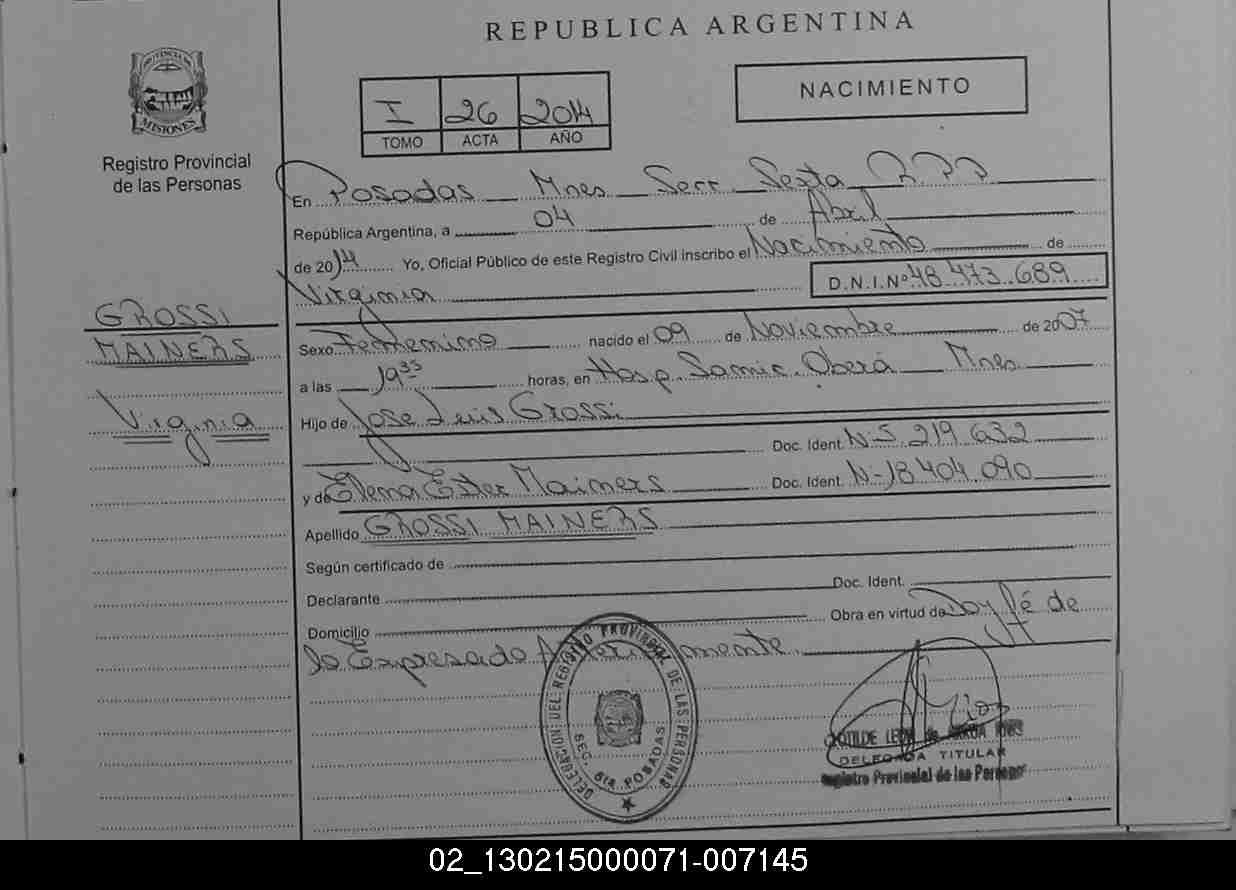 REPUBLICA ARGENTINA
PROVINCIA DE
MISIONES
Registro Provincial
de las Personas
I 26 2014
TOMO ACTA AÑO
NACIMIENTO
En Posadas Mnes Secc Sexta R.P.P
República Argentina, a 04 de Abril
de 2014 Yo, Oficial Público de este Registro Civil inscribo el Nacimiento de
Virginia D.N.I.Nº 48.473.689
GROSSI
MAINERS
Virginia
Sexo Femenino nacido el 09 de Noviembre de 2007
a las 19 35 horas, en Hosp. Samic. Oberá Mnes
Hijo de Jose Luis Grossi
Doc. Ident. N-5.219.632
y de Elena Ester Mainers Doc. Ident. N-18.404.090
Apellido GROSSI MAINERS
Según certificado de
Declarante Doc. Ident.
Domicilio Obra en virtud de Doy fé de
lo Expresado Anteriormente.
DELEGACION DEL REGISTRO PROVINCIAL DE LAS PERSONAS
SEC. 6ta POSADAS
DELEGADA TITULAR
Registro Provincial de las Personas
02_130215000071-007145